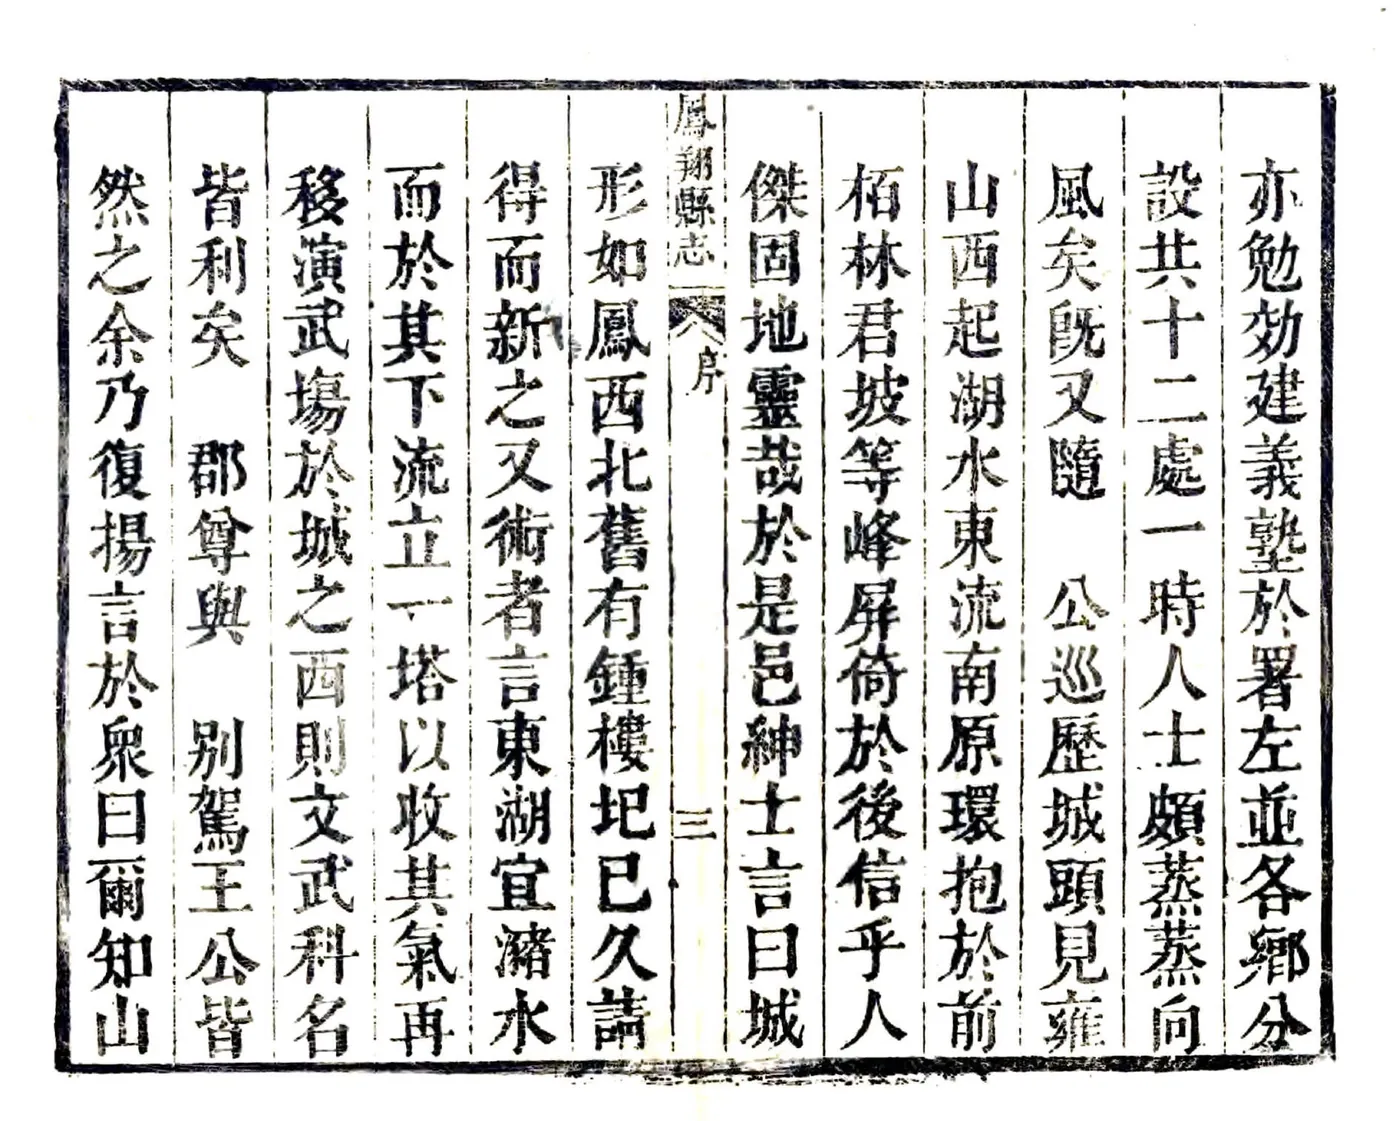 亦勉効建義塾於署左並各鄉分
設共十二處一時人士頗蒸蒸向
風矣旣又隨　公巡歷城頭見雍
山西起湖水東流南原環抱於前
栢林君坡等峰屏倚於後信乎人
傑固地靈哉於是邑紳士言曰城
鳳翔縣志　序　三
形如鳳西北舊有鍾樓圯已久請
得而新之又術者言東湖宜瀦水
而於其下流立一塔以收其氣再
移演武塲於城之西則文武科名
皆利矣　郡尊與　別駕王公皆
然之余乃復揚言於衆曰爾知山